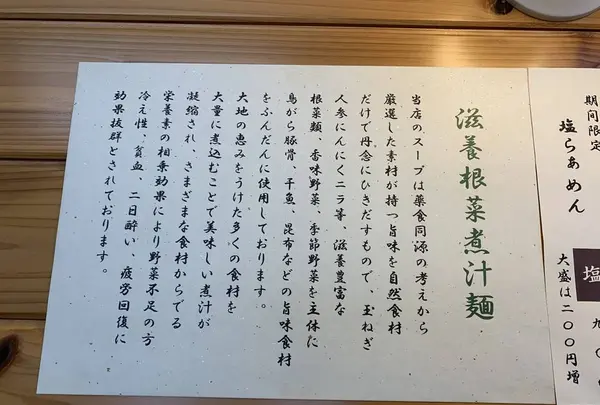 期間限定
塩らぁめん
塩
大盛は二〇〇円増
滋養根菜煮汁麺
当店のスープは薬食同源の考えから
厳選した素材が持つ旨味を自然食材
だけで丹念にひきだすもので、玉ねぎ
人参にんにくニラ等、滋養豊富な
根菜類、香味野菜、季節野菜を主体に
鳥がら豚骨、干魚、昆布などの旨味食材
をふんだんに使用しております。
大地の恵みをうけた多くの食材を
大量に煮込むことで美味しい煮汁が
凝縮され、さまざまな食材からでる
栄養素の相乗効果により野菜不足の方
冷え性、貧血、二日酔い、疲労回復に
効果抜群とされております。